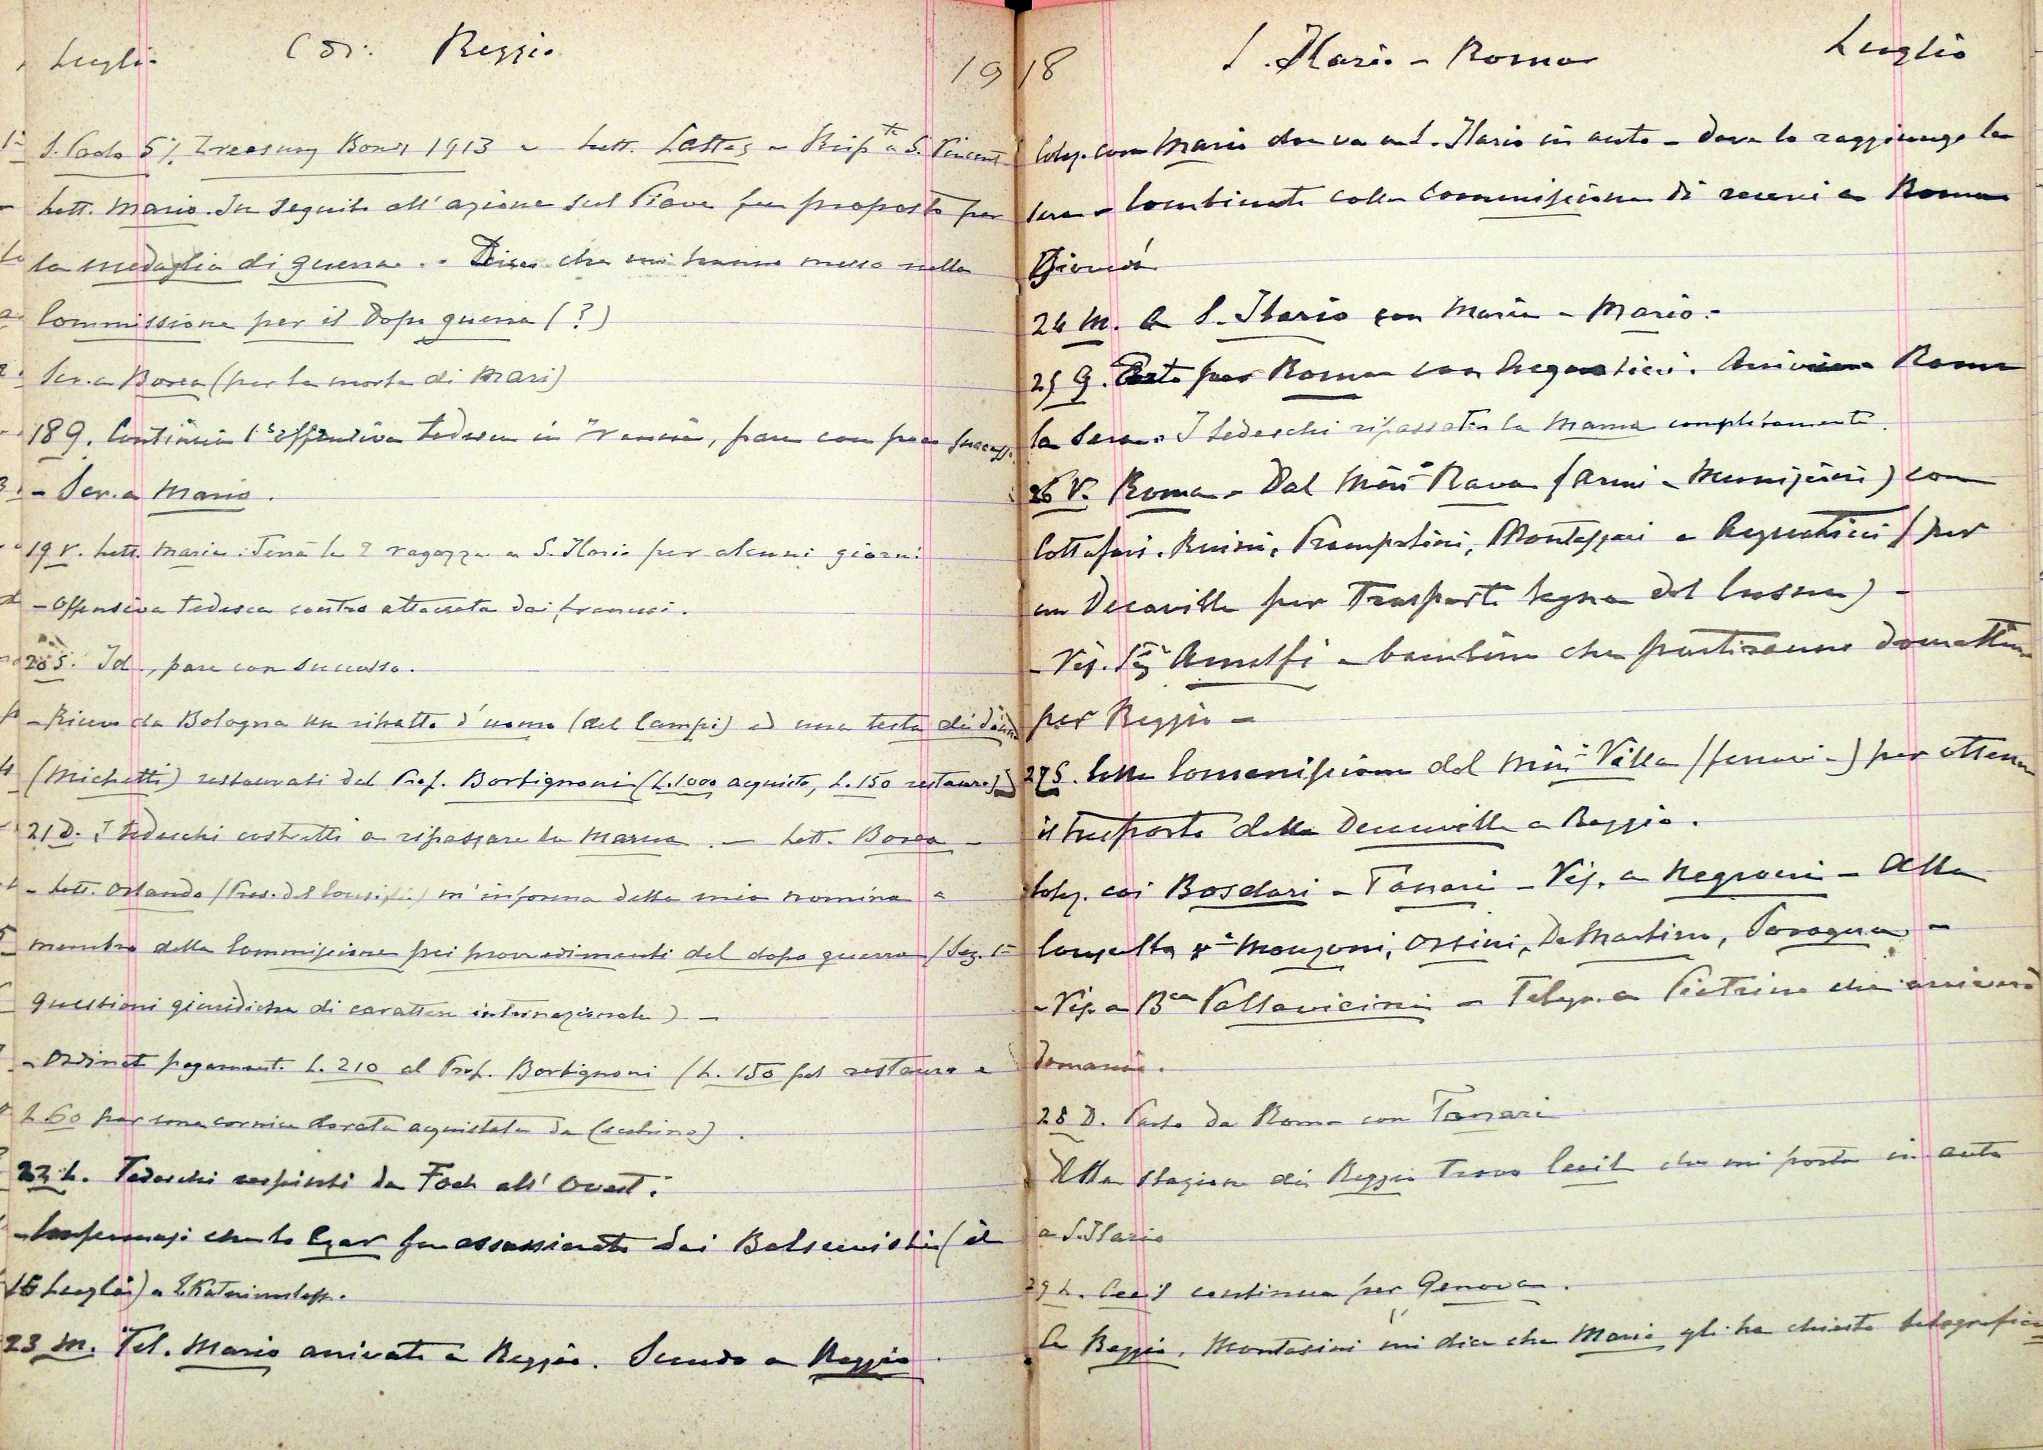 Luglio Reggio 19
S. Paolo 5% Treasury Bonds 1913 - Lett. Lattes - a S. Vincent
Lett. Mario. In seguito all'azione sul Piave fu proposto per
la medaglia di guerra. - Dice che mi hanno messo nella
Commissione per il dopo guerra (?)
Scr. a Borea (per la morte di Mari)
18 G. Continua l'offensiva tedesca in Francia, pare con poco successo
- Scr. a Mario.
19 V. Lett. Maria. Terrà le 2 ragazze a S. Ilario per alcuni giorni
- Offensiva tedesca contro attaccata dai francesi.
20 S. Id., pare con successo.
- Ricevo da Bologna un ritratto d'uomo (del Campi) ed una testa di donna
(Michetti) restaurati dal Prof. Bortignoni (L. 1000 acquisto, L. 150 restauro)
21 D. I tedeschi costretti a ripassare la Marna. - Lett. Borea -
- Lett. Orlando (Pres. del Consiglio) m'informa della mia nomina a
membro della Commissione pei provvedimenti del dopo guerra (Sez. 1a
questioni giuridiche di carattere internazionale) -
- Ordinat pagament. L. 210 al Prof. Bortignoni (L. 150 pel restauro e
L. 60 per una cornice dorata acquistata da Cecchino).
22 L. Tedeschi respinti da Foch all'Ovest.
- Confermasi che lo Czar fu assassinato dai Bolscevichi (il
16 Luglio) a
23 M. Tel. Mario arrivato a Reggio. Scendo a Reggio.
18 S. Ilario - Roma Luglio
Coleg. con Mario che va a S. Ilario in auto - dove lo raggiungo la
sera - Combinato colla Commissione di recarsi a Roma
Giovedì
24 M. A S. Ilario con Maria - Mario. -
25 G. Parto per Roma con Regnatici. Arrivo a Roma
la sera. I tedeschi ripassato la Marna completamente.
26 V. Roma - Dal Min° Rava (Armi e Munizioni) con
Cottafavi, Ruini, Prampolini, e Regnatici (per
un Decauville per trasporto legna dal Cusna) -
- Vis. Sig. Amelfi e bambini che partiranno domattina
per Reggio -
27 S. Colla Commissione dal Min° Villa (ferrovie) per ottenere
il trasporto della Decauville a Reggio.
Coleg. coi Bosdari - Tanari - Vis. a Negroni - Alla
Consulta Manzoni, Orsini, De Martino, -
- Vis. a Pallavicini - Telegr. a che arriverò
domani.
28 D. Parto da Roma con Tanari
Alla stazione di Reggio trovo Cecil che mi porta in auto
a S. Ilario
29 L. Cecil continua per Genova.
A Reggio, mi dice che Mario gli ha chiesto